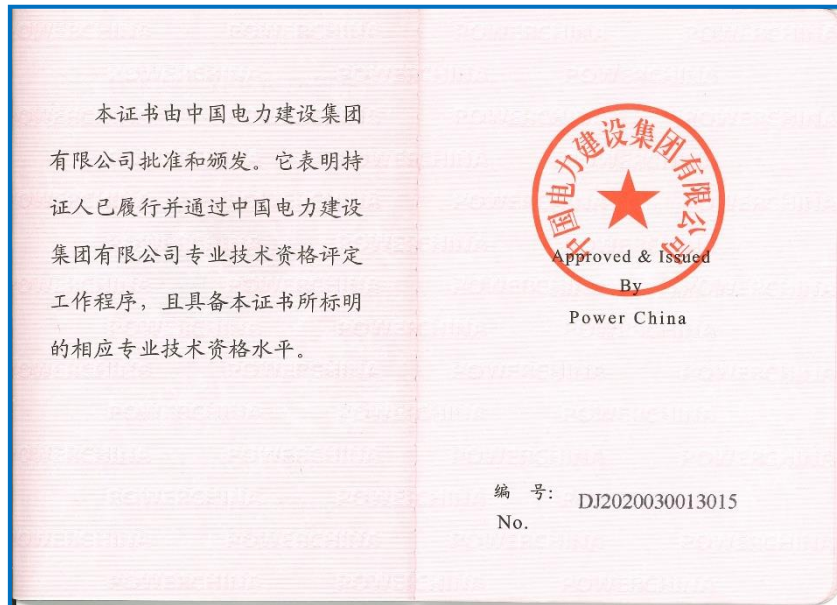 本证书由中国电力建设集团
有限公司批准和颁发。它表明持
证人已履行并通过中国电力建设
集团有限公司专业技术资格评定
工作程序，且具备本证书所标明
的相应专业技术资格水平。
中国电力建设集团有限公司
Approved & Issued
By
Power China
编 号: DJ2020030013015
No.